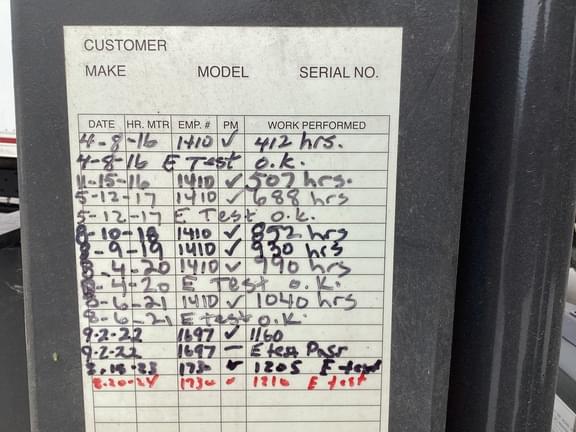 CUSTOMER
MAKE MODEL SERIAL NO.
DATE HR. MTR EMP. # PM WORK PERFORMED
4-8-16 1410 ✓ 412 hrs.
4-8-16 E Test o.k.
11-15-16 1410 ✓ 507 hrs.
5-12-17 1410 ✓ 688 hrs
5-12-17 E Test o.k.
-10-18 1410 ✓ 852 hrs
-9-19 1410 ✓ 930 hrs
-4-20 1410 ✓ 990 hrs
-4-20 E Test o.k.
8-6-21 1410 ✓ 1040 hrs
8-6-21 E test o.k.
9-2-22 1697 ✓ 1160
9-2-22 1697 – E test Pass
173 ✓ 1205 E test
8.20-24 1730 1210 E test